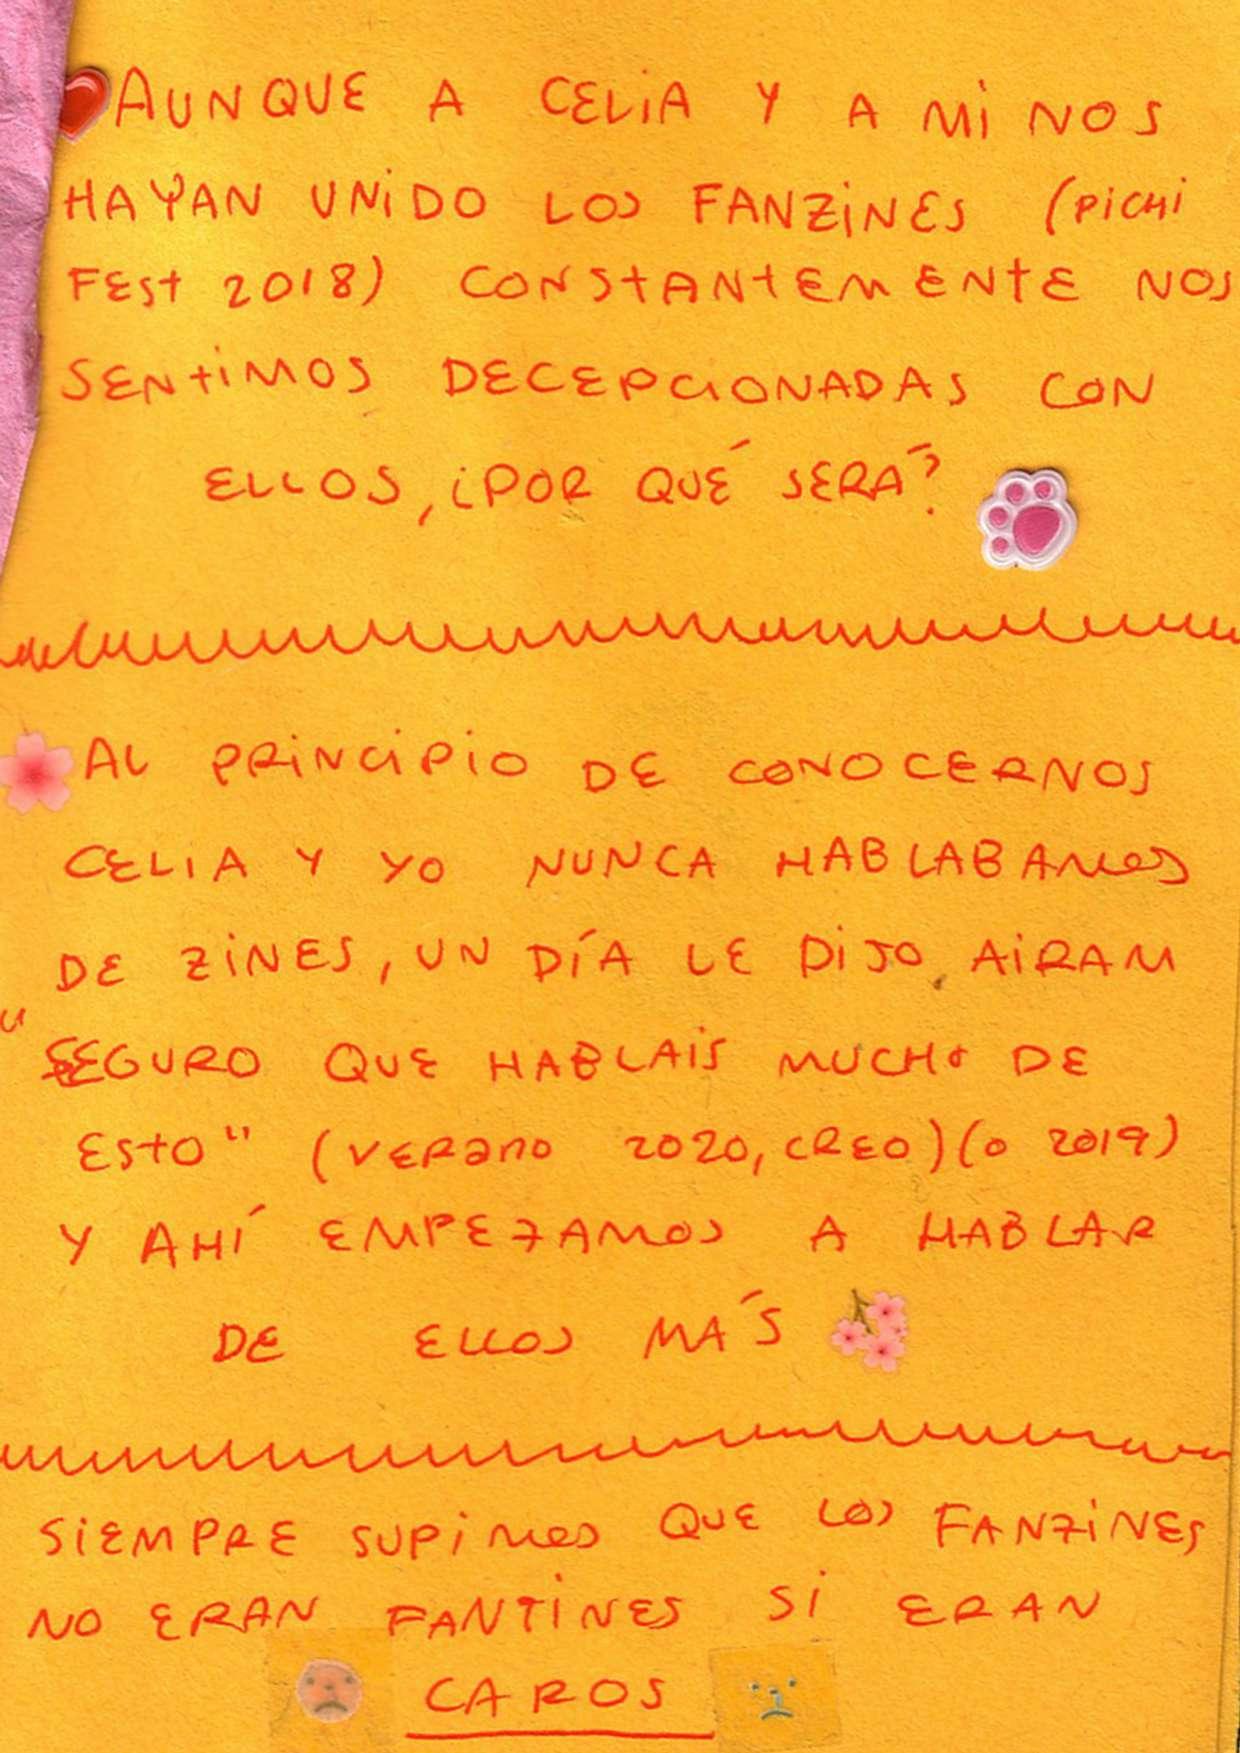 AUNQUE A CELIA Y A MI NOS
HAYAN UNIDO LOS FANZINES (PICHI
FEST 2018) CONSTANTEMENTE NOS
SENTIMOS DECEPCIONADAS CON
ELLOS, ¿POR QUÉ SERÁ?
AL PRINCIPIO DE CONOCERNOS
CELIA Y YO NUNCA HABLABAMOS
DE ZINES, UN DÍA LE DIJO AIRAM
"SEGURO QUE HABLAIS MUCHO DE
ESTO" (VERANO 2020, CREO) (O 2019)
Y AHÍ EMPEZAMOS A HABLAR
DE ELLOS MÁS
SIEMPRE SUPIMOS QUE LOS FANZINES
NO ERAN FANTINES SI ERAN
CAROS